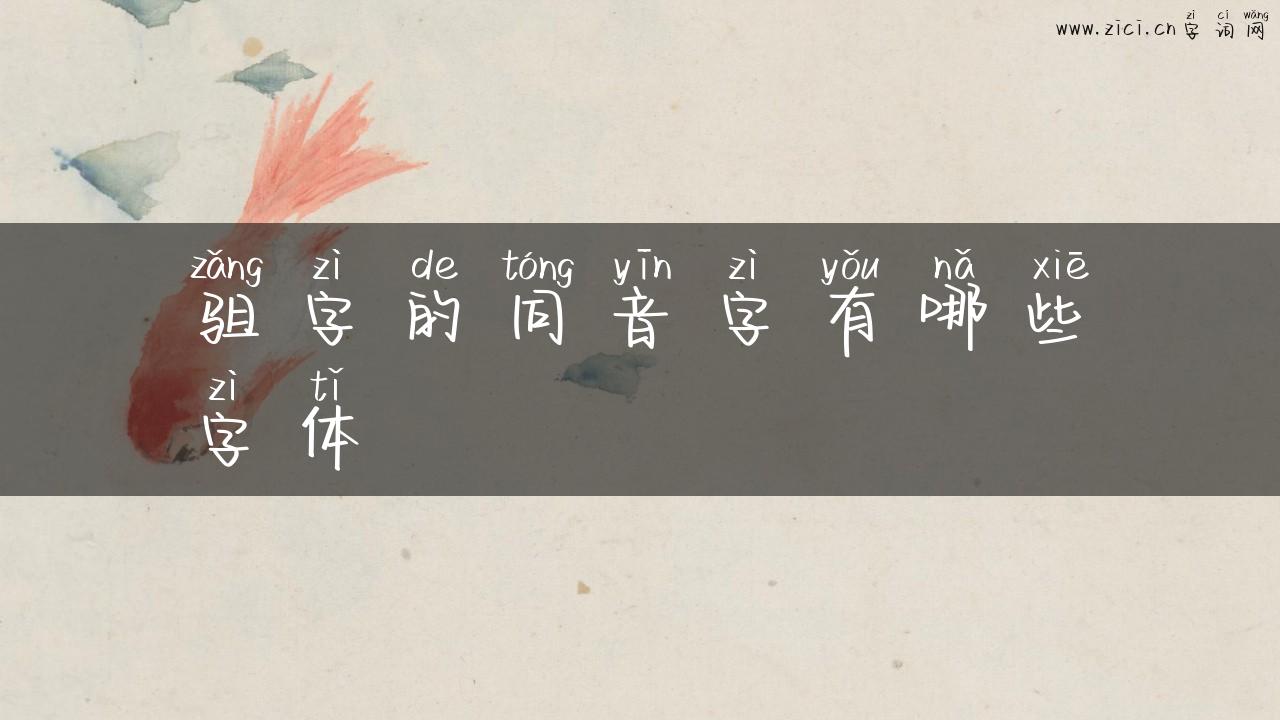 www.zici.cn zì cí wǎng
字词网
zǎng zì de tóng yīn zì yǒu nǎ xiē
驵字的同音字有哪些
zì tǐ
字体